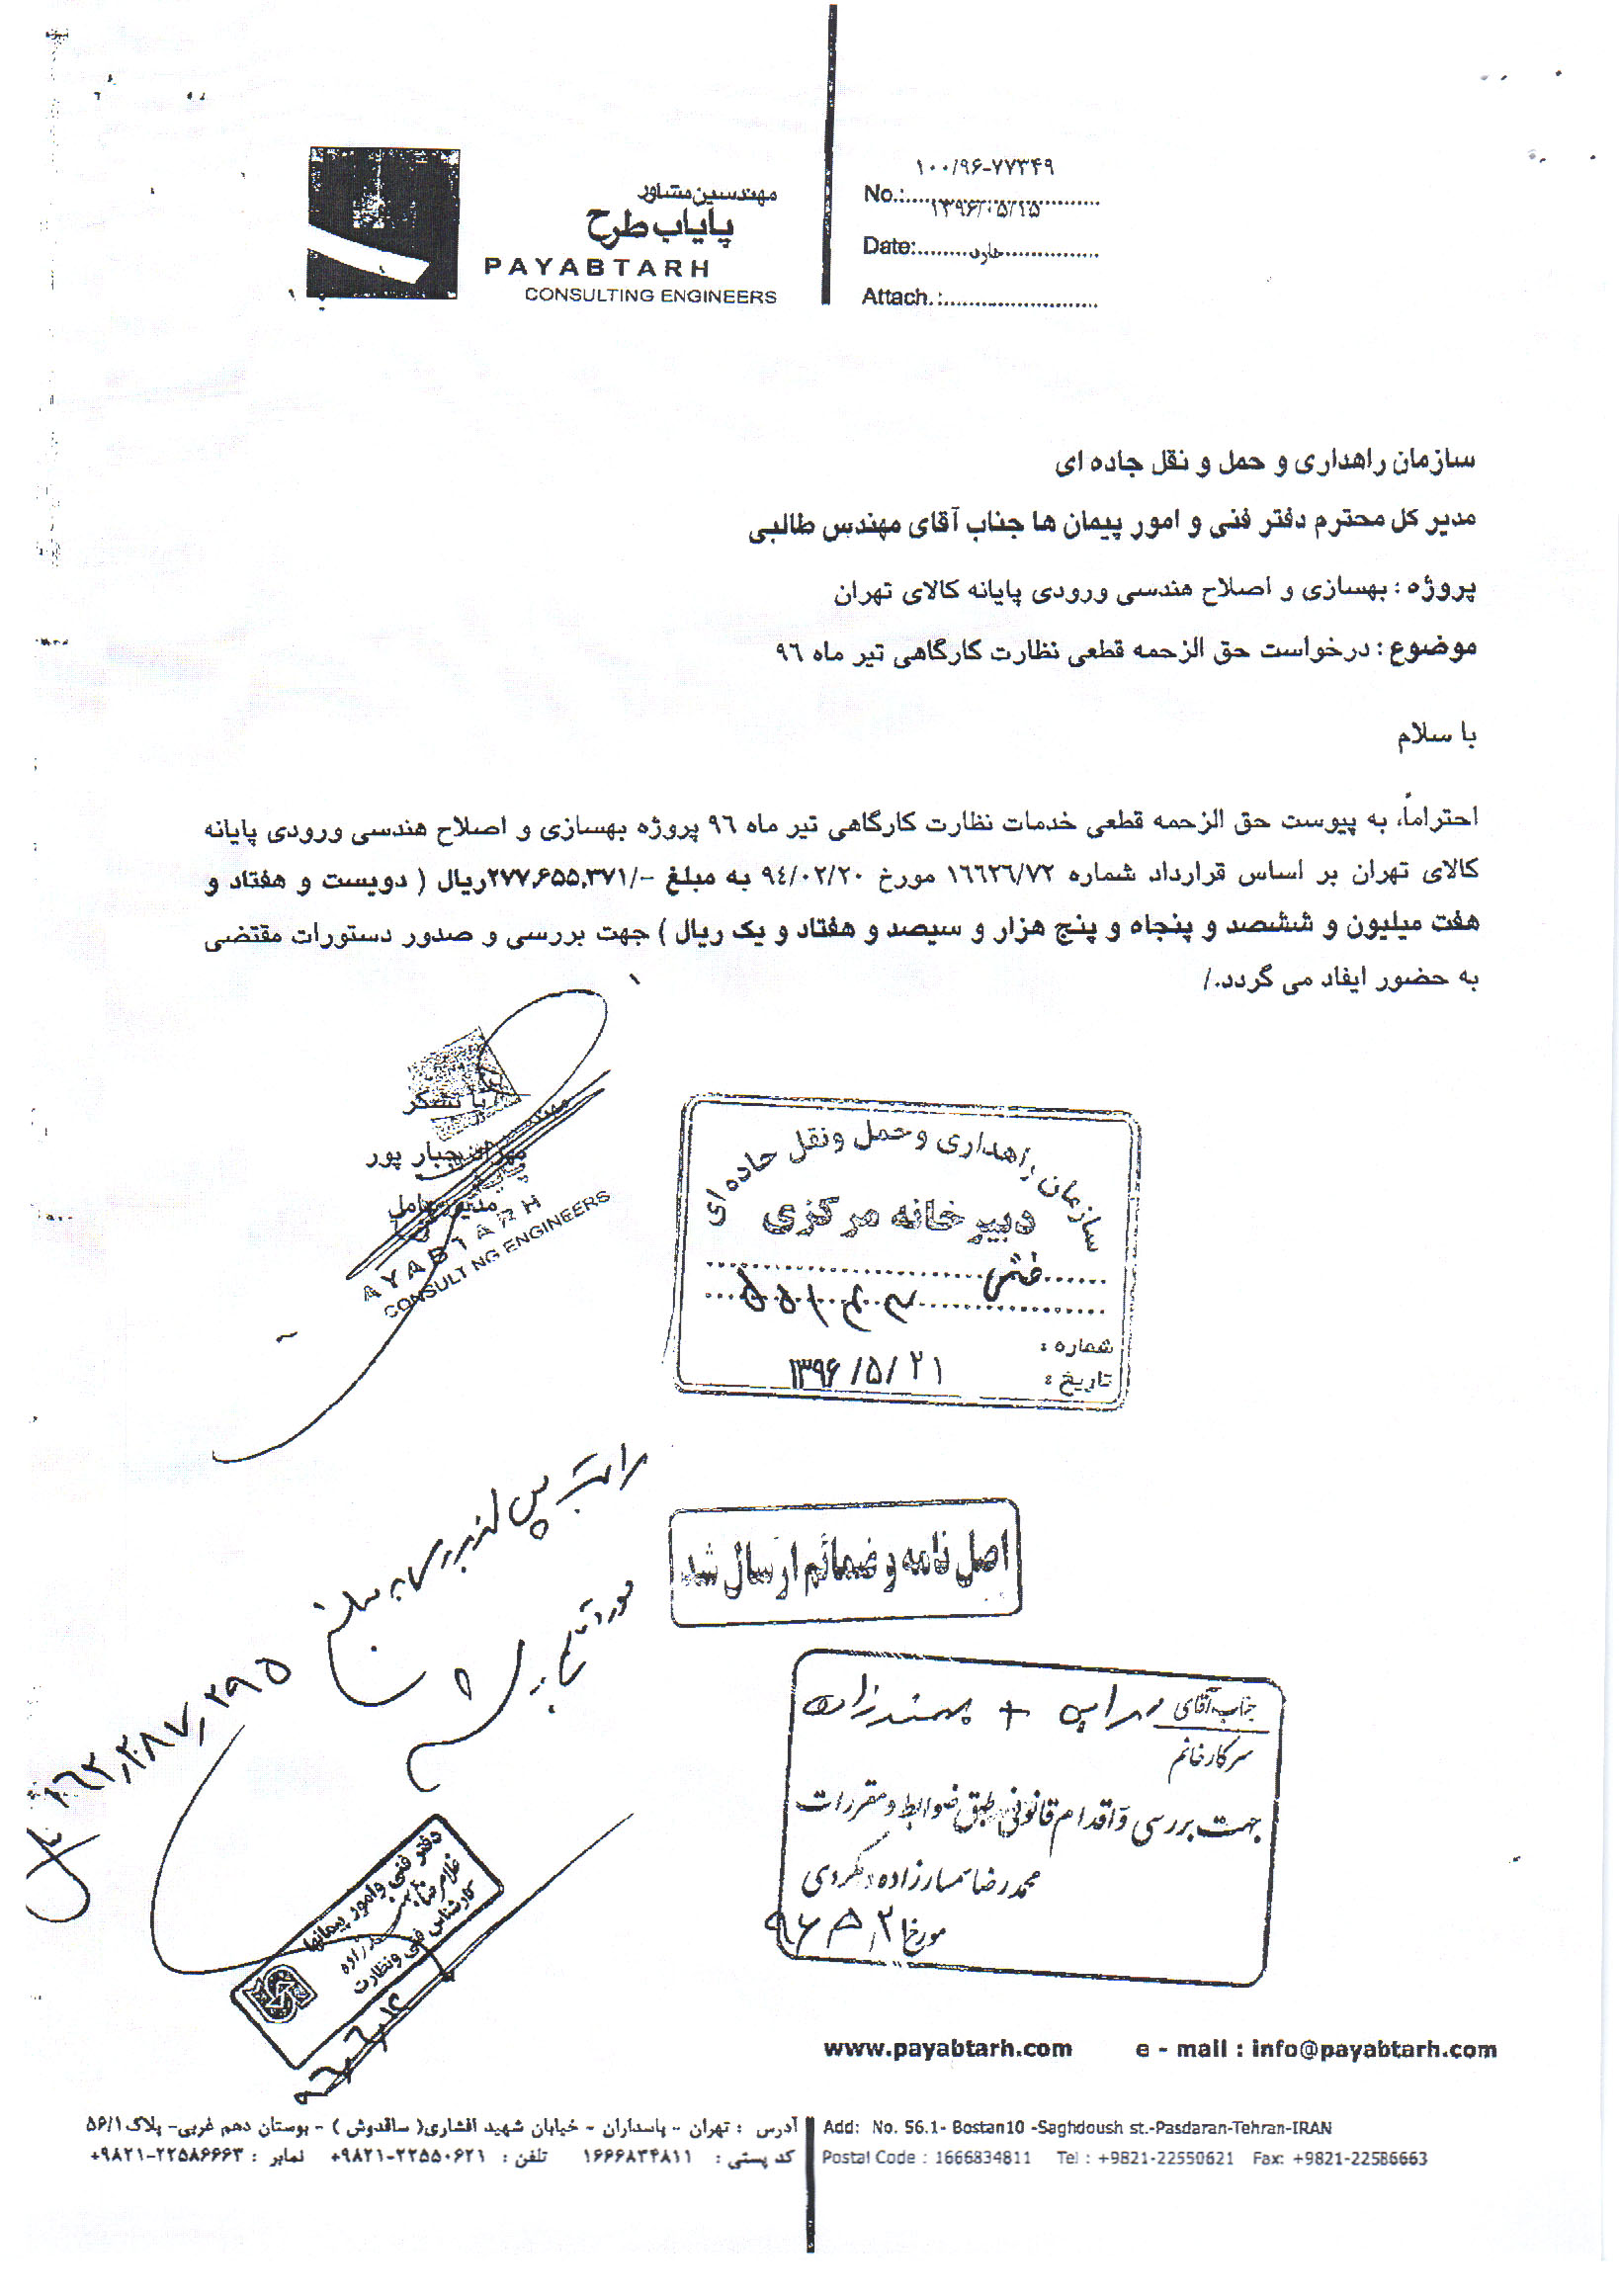 مهندسین مشاور
پایاب طرح
PAYABTARH
CONSULTING ENGINEERS
۱۰۰/۹۶-۷۷۳۴۹
No.:
۱۳۹۶/۰۵/۱۵
Date: ندارد
Attach.:
سازمان راهداری و حمل و نقل جاده ای
مدیر کل محترم دفتر فنی و امور پیمان ها جناب آقای مهندس طالبی
پروژه : بهسازی و اصلاح هندسی ورودی پایانه کالای تهران
موضوع : درخواست حق الزحمه قطعی نظارت کارگاهی تیر ماه ۹۶
با سلام
احتراماً، به پیوست حق الزحمه قطعی خدمات نظارت کارگاهی تیر ماه ۹۶ پروژه بهسازی و اصلاح هندسی ورودی پایانه
کالای تهران بر اساس قرارداد شماره ۱۶۶۲۶/۷۲ مورخ ۹۴/۰۲/۲۰ به مبلغ -/۲۷۷,۶۵۵,۳۷۱ریال ( دویست و هفتاد و
هفت میلیون و ششصد و پنجاه و پنج هزار و سیصد و هفتاد و یک ریال ) جهت بررسی و صدور دستورات مقتضی
به حضور ایفاد می گردد./
با تشکر
مهران جبار پور
مدیر عامل
PAYABTARH
CONSULTING ENGINEERS
سازمان راهداری و حمل ونقل جاده ای
دبیرخانه مرکزی
فنی
شماره :
تاریخ : ۱۳۹۶/۵/۲۱
مراتب پس از بررسی به مبلغ
مورد تایید
اصل نامه و ضمائم ارسال شد
جناب آقای
سرکار خانم
جهت بررسی و اقدام قانونی طبق ضوابط و مقررات
محمدرضا
مورخ
دفتر فنی وامور پیمانها
غلامرضا
کارشناس فنی ونظارت
www.payabtarh.com e - mail : info@payabtarh.com
آدرس : تهران - پاسداران - خیابان شهید افشاری( ساقدوش ) - بوستان دهم غربی- پلاک ۵۶/۱
کد پستی : ۱۶۶۶۸۳۴۸۱۱ تلفن : ۲۲۵۵۰۶۲۱-۹۸۲۱+ نمابر : ۲۲۵۸۶۶۶۳-۹۸۲۱+
Add: No. 56.1- Bostan10 -Saghdoush st.-Pasdaran-Tehran-IRAN
Postal Code : 1666834811 Tel : +9821-22550621 Fax: +9821-22586663